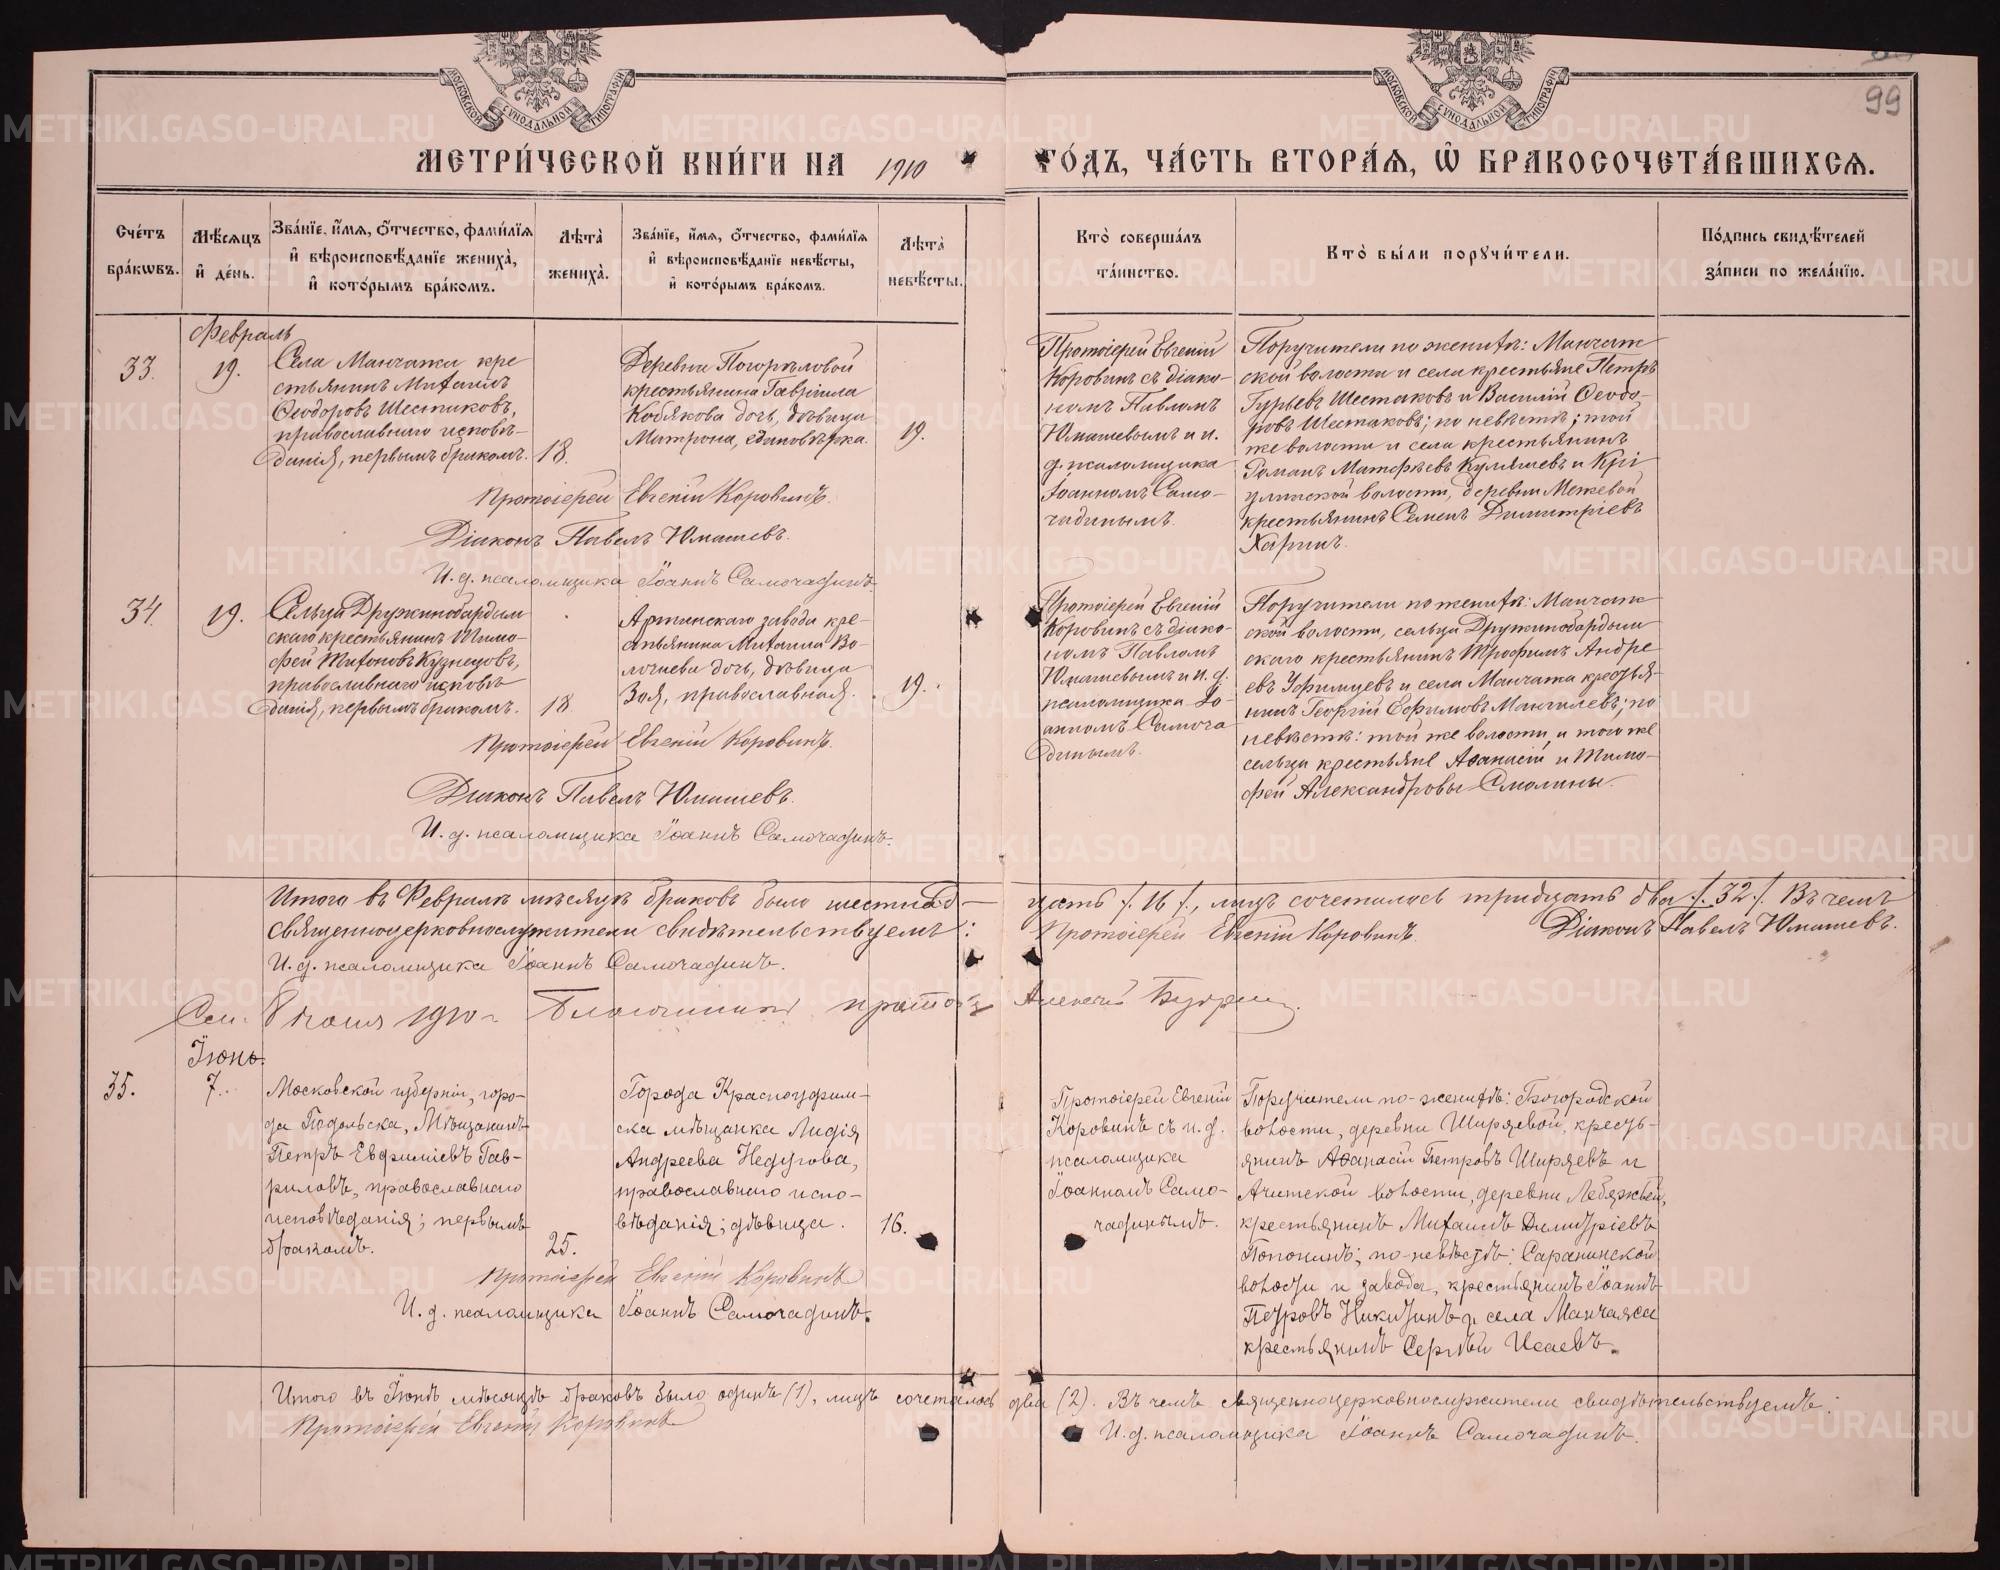 99
МЕТРИ́ЧЕСКОЙ КНИ́ГИ НА 1910 ГО́ДЪ, ЧА́СТЬ ВТОРА́Я, Ѽ БРАКОСОЧЕТА́ВШИХСЯ.
Сче́тъ бра́кѡвъ.
Мѣ́сяцъ и де́нь.
Зва́нїе, и́мя, о́тчество, фами́лїя и вѣроисповѣ́данїе жениха̀, и кото́рымъ бра́комъ.
Лѣ́та жениха̀.
Зва́нїе, и́мя, о́тчество, фами́лїя и вѣроисповѣ́данїе невѣ́сты, и кото́рымъ бра́комъ.
Лѣ́та невѣ́сты.
Кто̀ соверша́лъ та́инство.
Кто̀ бы́ли поручи́тели.
По́дпись свидѣ́телей за́писи по жела́нїю.
Февраль
33.
19.
Села Манчажа кре
стьянинъ Михаилъ
Ѳеодоровъ Шестаковъ,
православнаго исповѣ-
данія, первымъ бракомъ.
18.
Деревни Погорѣловой
крестьянина Гавріила
Кобякова дочь, дѣвица
Матрона, единовѣрка.
19.
Протоіерей Евгеній
Коровинъ съ діако-
номъ Павломъ
Юмашевымъ и и.
д. псаломщика
Іоанномъ Само-
чадинымъ.
Поручители по женихѣ: Манчаж
ской волости и села крестьяне Петръ
Гурьевъ Шестаковъ и Василій Ѳеодо-
ровъ Шестаковъ; по невѣстѣ: той
же волости и села крестьянинъ
Романъ Матфѣевъ Куляшевъ и Кри
улинской волости, деревни Межевой
крестьянинъ Семенъ Димитріевъ
Харинъ.
Протоіерей Евгеній Коровинъ.
Діаконъ Павелъ Юмашевъ.
И. д. псаломщика Іоаннъ Самочадинъ.
34.
19.
Сельца Дружинобардым
скаго крестьянинъ Тимо-
фей Тихоновъ Кузнецовъ,
православнаго исповѣ
данія, первымъ бракомъ.
18.
Артинскаго завода кре-
стьянина Михаила Во-
лочнева дочь, дѣвица
Зоя, православная.
19.
Протоіерей Евгеній
Коровинъ съ діако-
номъ Павломъ
Юмашевымъ и и. д.
псаломщика Іо-
анномъ Самоча
динымъ.
Поручители по женихѣ: Манчаж
ской волости, сельца Дружинобардым
скаго крестьянинъ Трофимъ Андре
евъ Уфимцевъ и села Манчажа крестья-
нинъ Георгій Ефимовъ Мангилевъ; по
невѣстѣ: той же волости, и того же
сельца крестьяне Аѳанасій и Тимо-
фей Александровы Смолины.
Протоіерей Евгеній Коровинъ.
Діаконъ Павелъ Юмашевъ.
И. д. псаломщика Іоаннъ Самочадинъ.
Итого въ Февралѣ мѣсяцѣ браковъ было шестнад-цать /. 16 /., лицъ сочеталось тридцать два /. 32 /. Въ чемъ
священноцерковнослужители свидѣтельствуемъ: Протоіерей Евгеній Коровинъ. Діаконъ Павелъ Юмашевъ.
И. д. псаломщика Іоаннъ Самочадинъ.
8 1910 г. Благочинный протоі Алексій
Іюнь.
35.
7.
Московской губерніи, горо-
да Подольска, Мѣщанинъ
Петръ Евфиміевъ Гав-
риловъ, православнаго
исповѣданія; первымъ
бракомъ.
25.
Города Красноуфим-
ска мѣщанка Лидія
Андреева Недугова,
православнаго испо-
вѣданія; дѣвица.
16.
Протоіерей Евгеній
Коровинъ съ и. д.
псаломщика
Іоанномъ Само-
чадинымъ.
Поручители по-женихѣ: Богородской
волости, деревни Ширяевой, кресть-
янинъ Аѳанасій Петровъ Ширяевъ и
Ачитской волости, деревни Лебяжьей,
крестьянинъ Михаилъ Димитріевъ
Попонинъ; по-невѣстѣ: Саранинской
волости и завода, крестьянинъ Іоаннъ
Петровъ Никитинъ и села Манчажа
крестьянинъ Сергѣй Исаевъ.
Протоіерей Евгеній Коровинъ
И. д. псаломщика Іоаннъ Самочадинъ.
Итого въ Іюнѣ мѣсяцѣ браковъ было одинъ (1), лицъ сочеталось два (2). Въ чемъ священноцерковнослужители свидѣтельствуемъ:
Протоіерей Евгеній Коровинъ И. д. псаломщика Іоаннъ Самочадинъ.